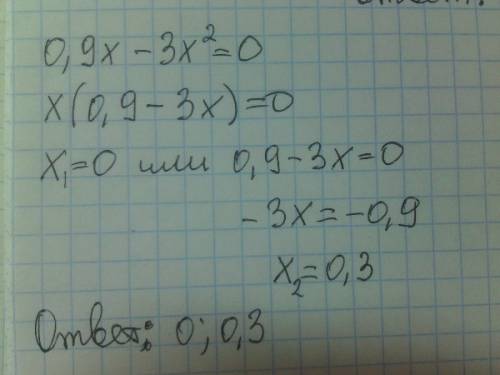 0,9x − 3x² = 0
x(0,9 − 3x) = 0
x₁ = 0 или 0,9 − 3x = 0
− 3x = − 0,9
x₂ = 0,3
Ответ: 0; 0,3